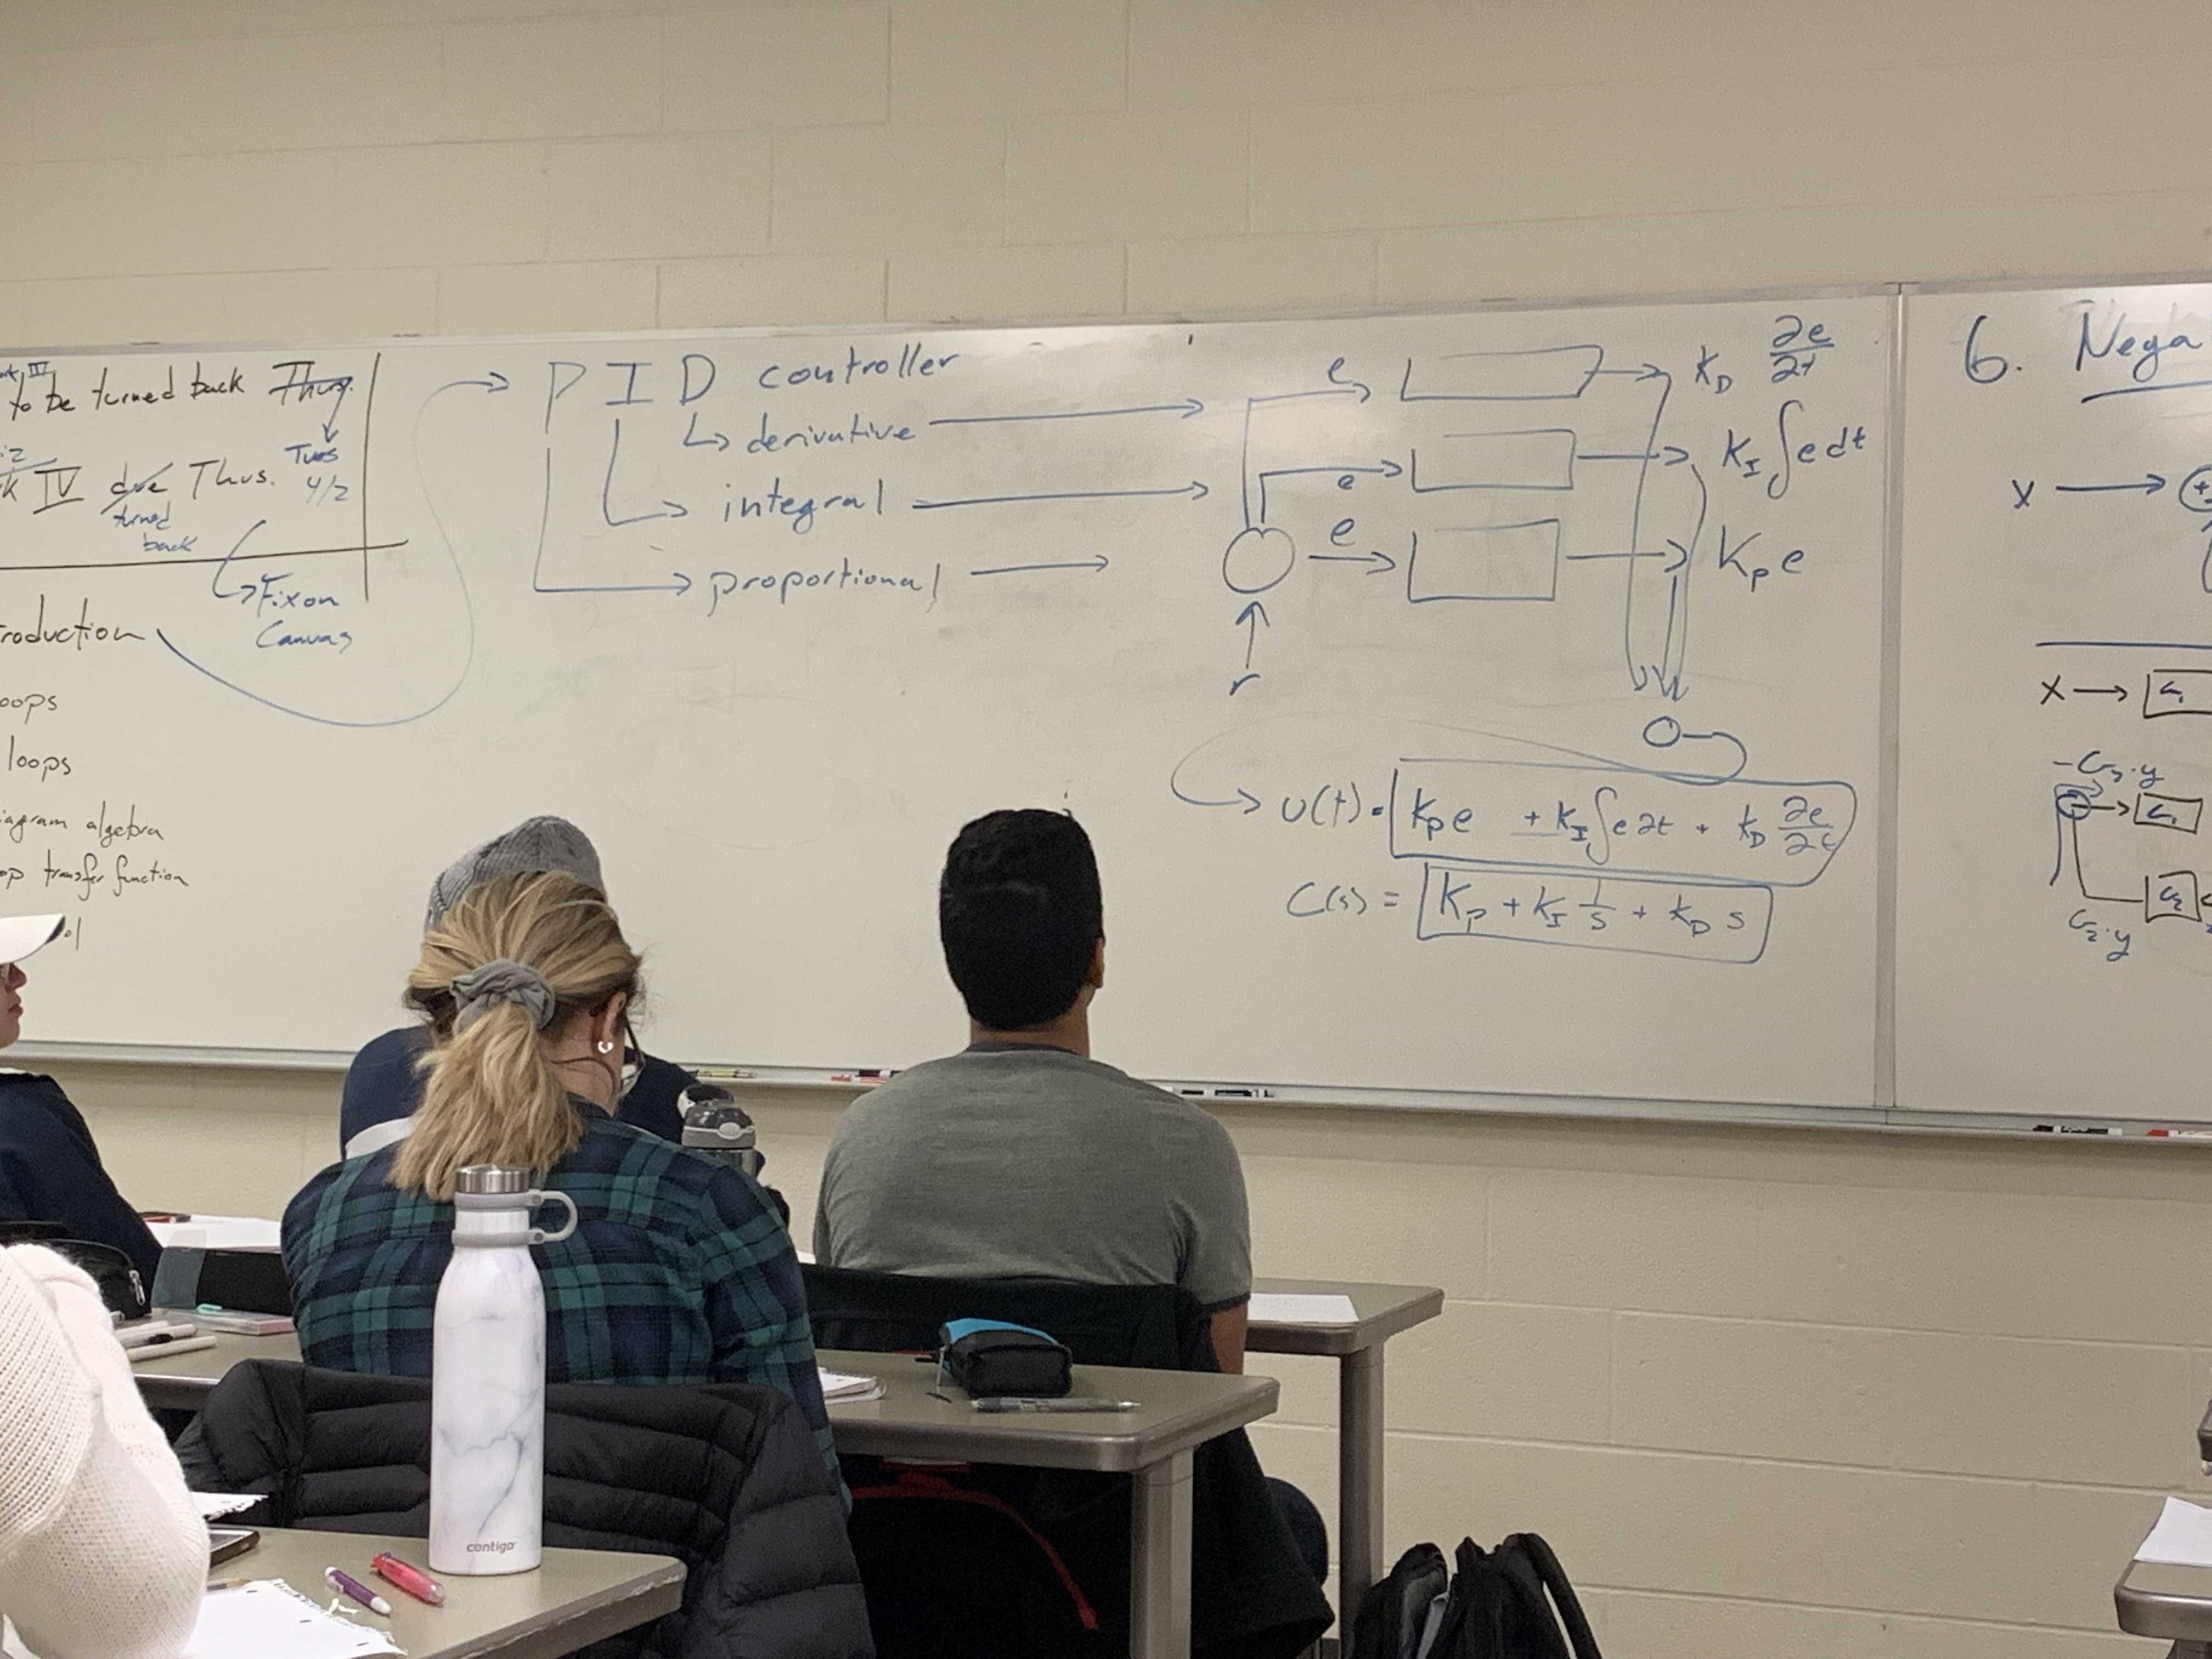 III
to be turned back Thurs.
Tues
4/2
IV due Thus.
turned
back
Fix on
Canvas
roduction
oops
loops
iagram algebra
op transfer function
ol
P I D controller
derivative
integral
proportional
e
e
e
r
K_D ∂e/∂t
K_I ∫e dt
K_P e
U(t) = K_P e + K_I ∫e ∂t + K_D ∂e/∂t
C(s) = K_P + K_I 1/s + K_D s
6. Nega
X +
X G₁
-G₂·y
G₁
G₂
G₂·y
contigo